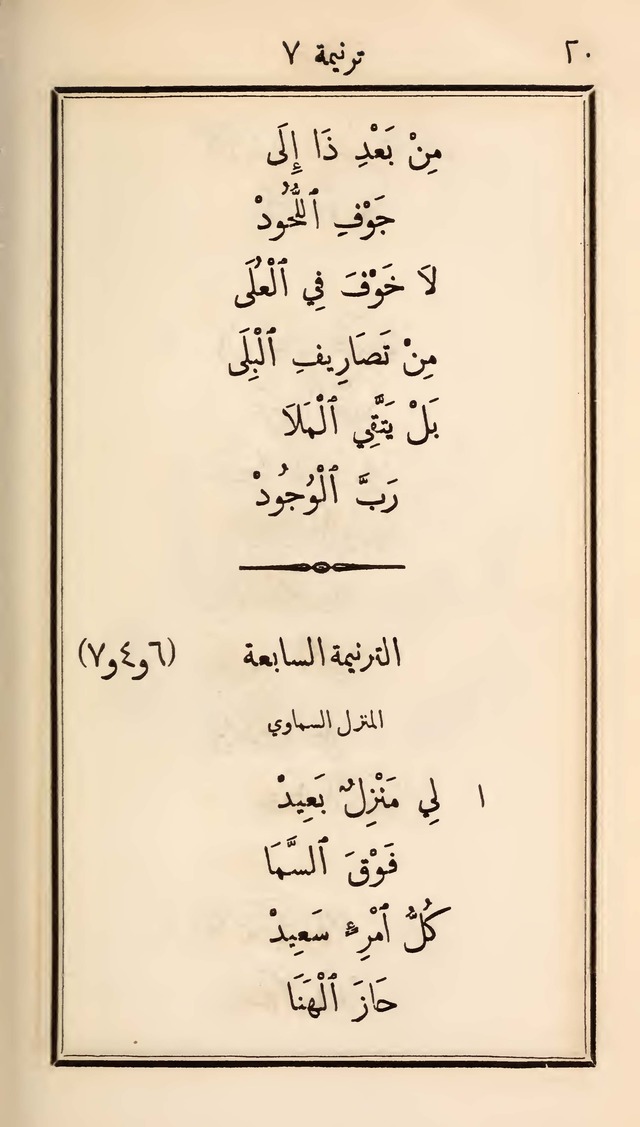 ٢٠ ترنيمة ٧
مِنْ بَعْدِ ذَا إِلَى
جَوْفِ ٱللُّحُودْ
لَا خَوْفَ فِي ٱلْعُلَى
مِنْ تَصَارِيفِ ٱلْبِلَى
بَلْ يَتَّقِي ٱلْمَلَا
رَبَّ ٱلْوُجُودْ
الترنيمة السابعة (٦و٤و٧)
المنزل السماوي
١ لِي مَنْزِلٌ بَعِيدْ
فَوْقَ ٱلسَّمَا
كُلُّ ٱمْرِءٍ سَعِيدْ
حَازَ ٱلْهَنَا